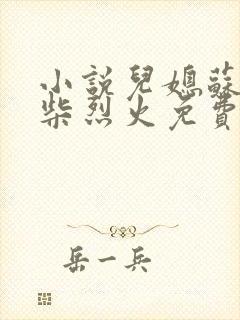 小說兒媳蘇
柴烈火免費
岳一兵